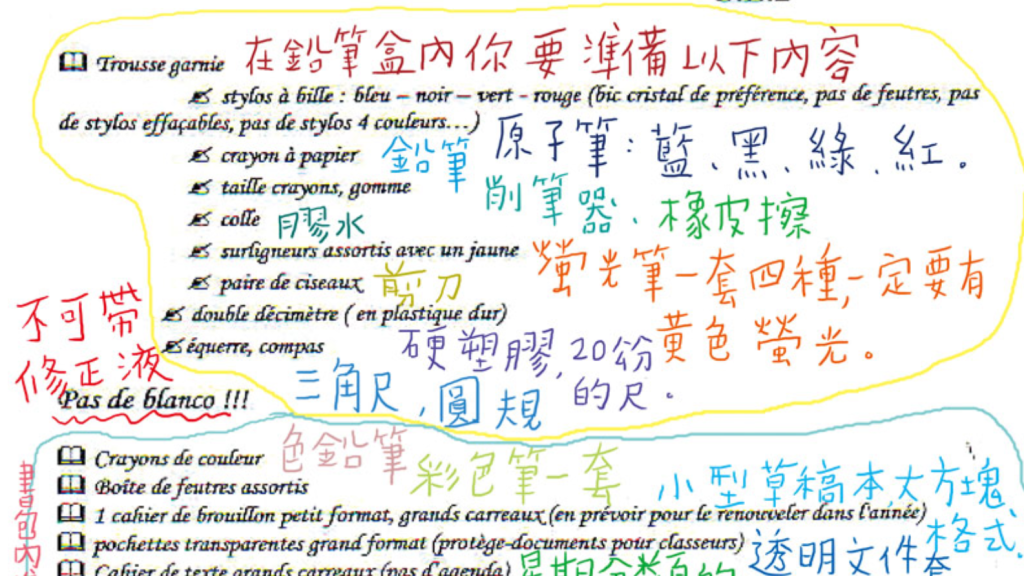 Trousse garnie 在鉛筆盒內你要準備以下內容
stylos à bille : bleu – noir – vert - rouge (bic cristal de préférence, pas de feutres, pas
de stylos effaçables, pas de stylos 4 couleurs…)
原子筆：藍、黑、綠、紅。
crayon à papier 鉛筆
taille crayons, gomme 削筆器、橡皮擦
colle 膠水
surligneurs assortis avec un jaune 螢光筆一套四種,一定要有
黃色螢光。
paire de ciseaux 剪刀
double décimètre ( en plastique dur)
硬塑膠,20公分
的尺。
équerre, compas
三角尺,圓規
不可帶
修正液
Pas de blanco !!!
Crayons de couleur 色鉛筆
Boîte de feutres assortis 彩色筆一套
小型草稿本,大方塊
格式.
1 cahier de brouillon petit format, grands carreaux (en prévoir pour le renouveler dans l'année)
pochettes transparentes grand format (protège-documents pour classeurs)
透明文件
Cahier de texte grands carreaux (pas d'agenda)
書包內